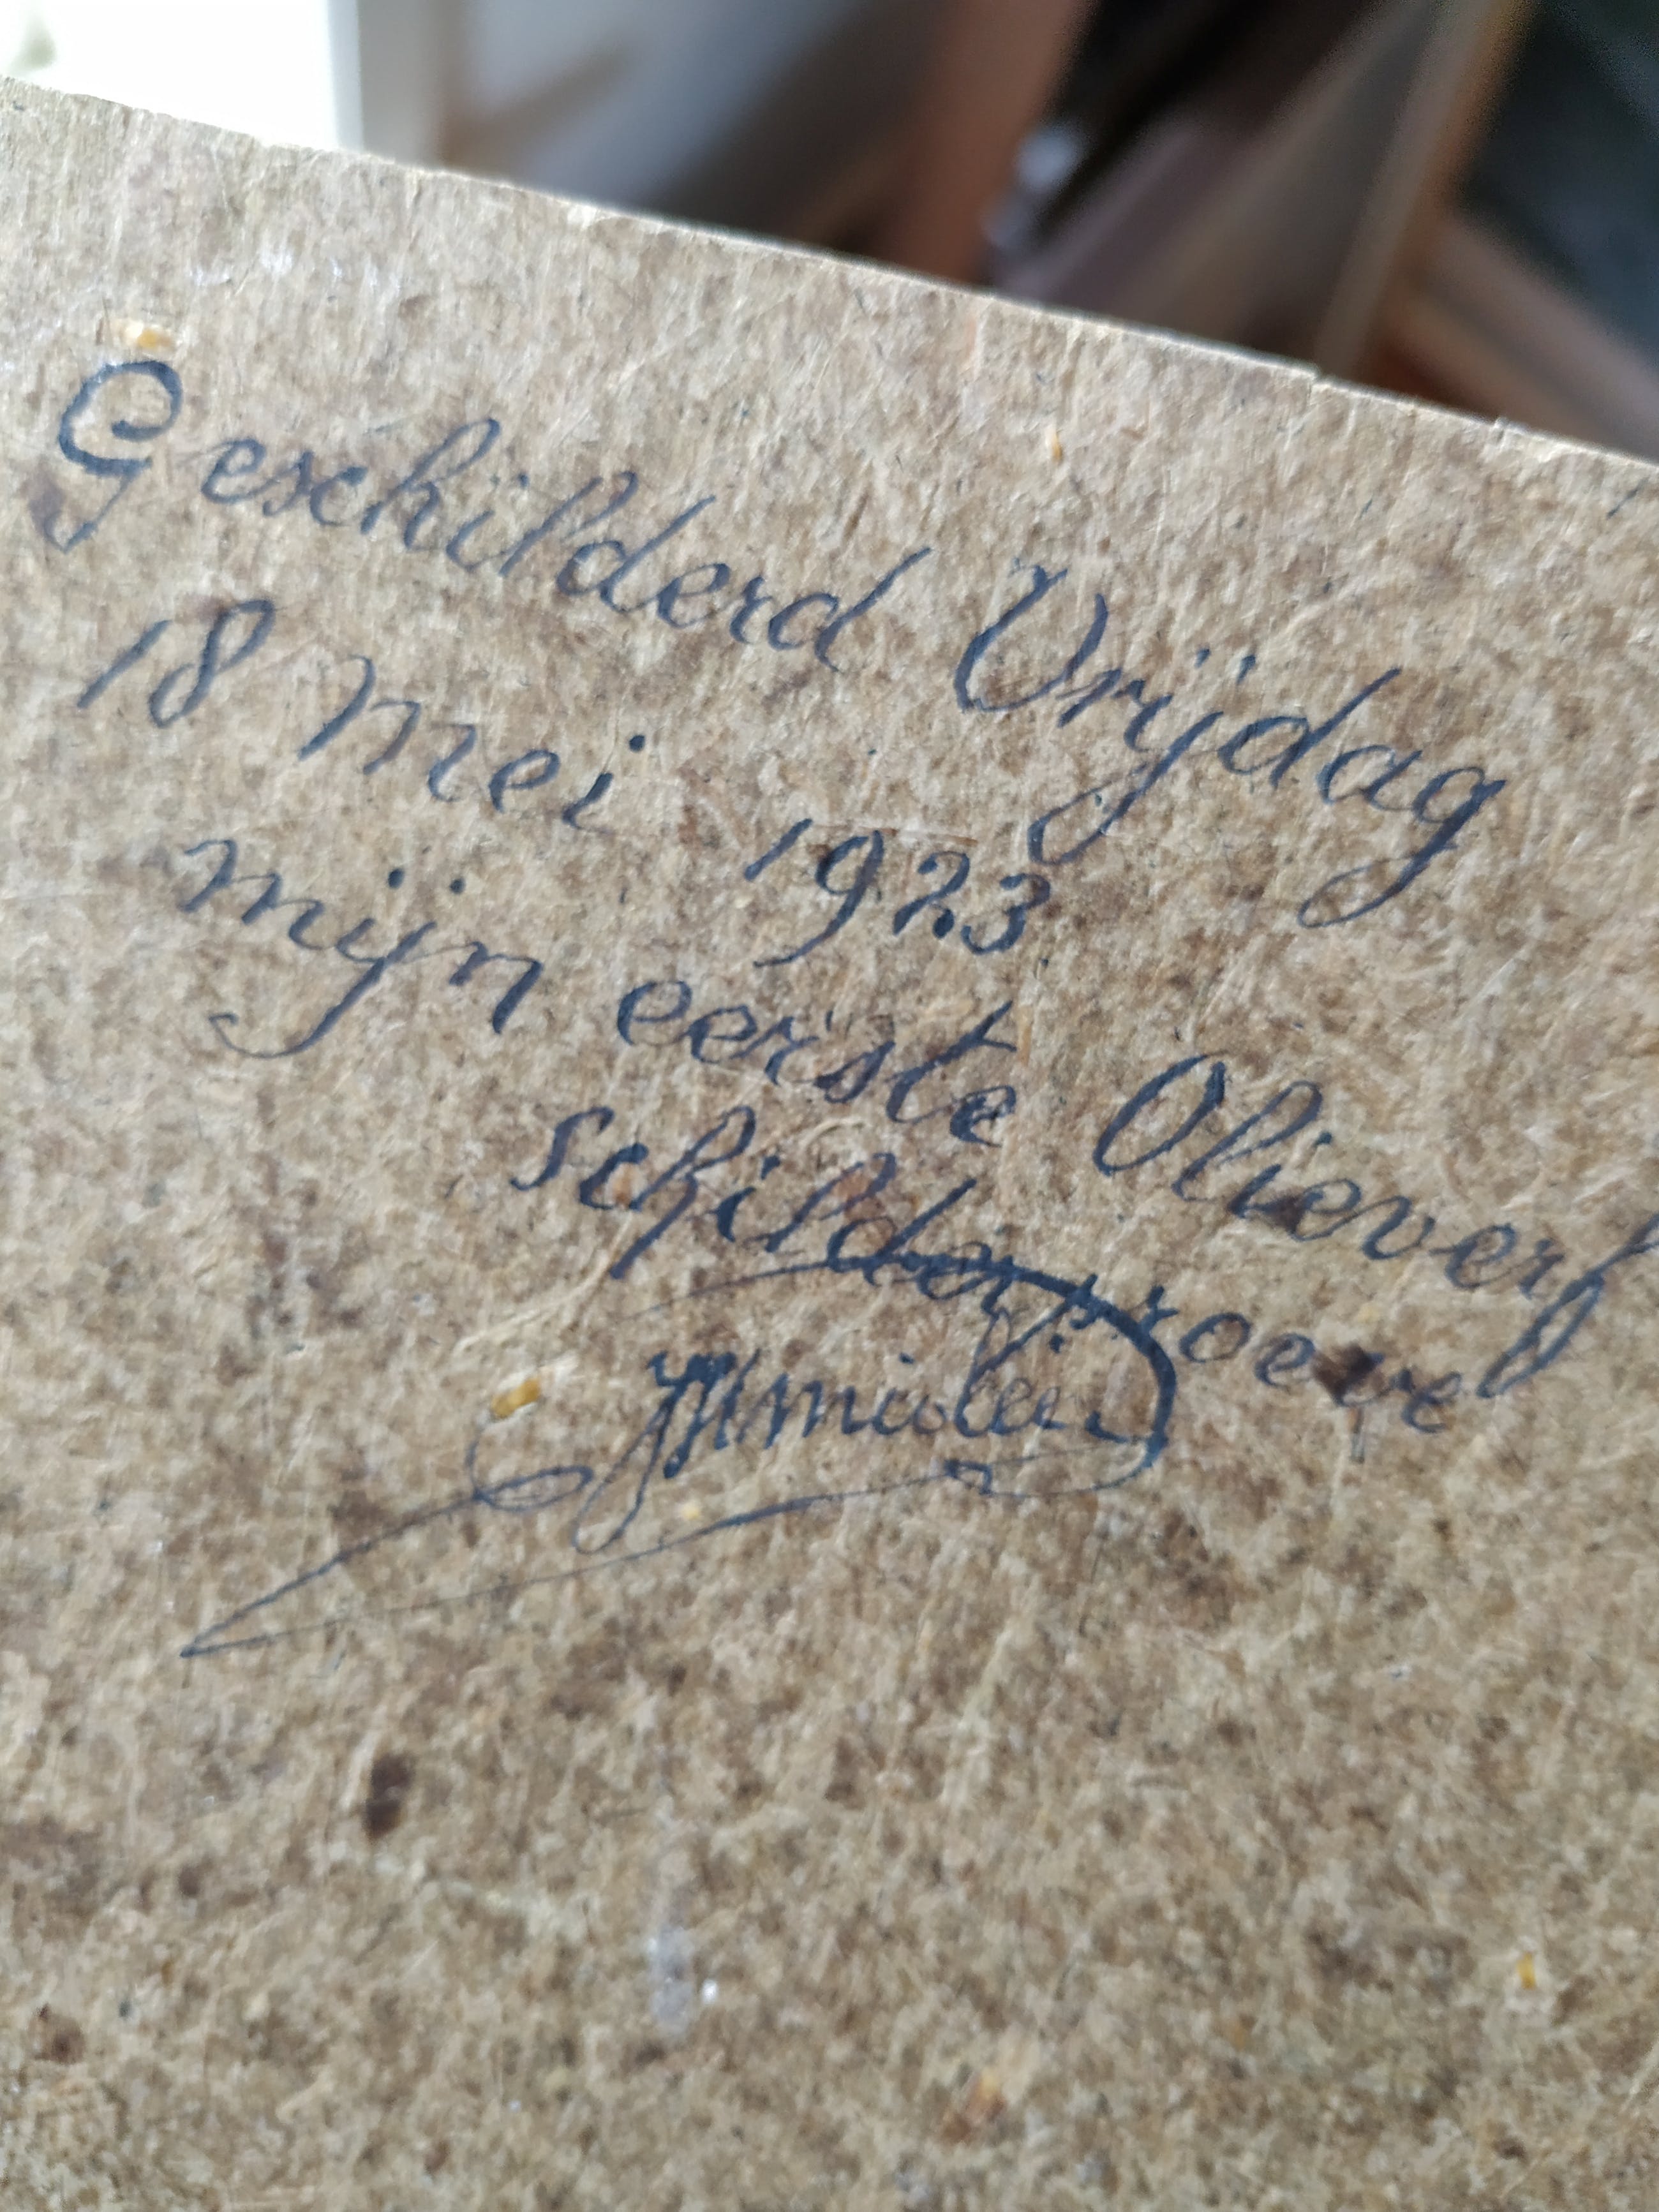 Geschilderd Vrijdag
18 Mei 1923
mijn eerste Olieverf
schilderproeve